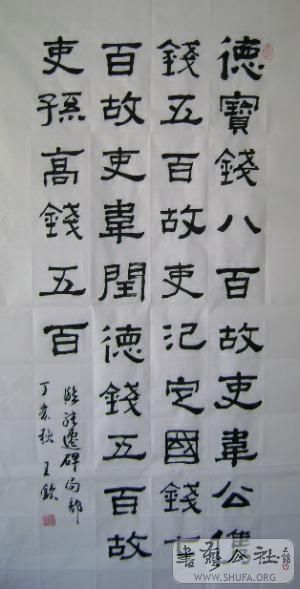 德寶錢八百故吏韋公儁
錢五百故吏氾定國錢七
百故吏韋閏德錢五百故
吏孫高錢五百
臨張遷碑局部
丁亥秋 王欽
書藝公社
WWW.SHUFA.ORG